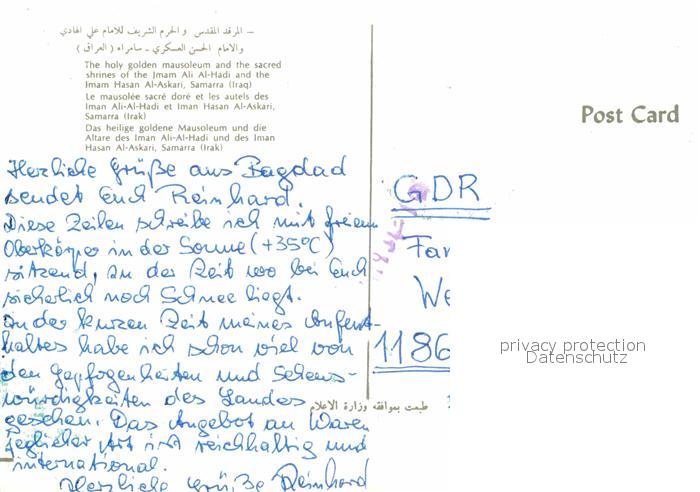 – المرقد المقدس و الحرم الشريف للامام علي الهادي
والامام الحسن العسكري – سامراء ( العراق )
The holy golden mausoleum and the sacred
shrines of the Imam Ali Al-Hadi and the
Imam Hasan Al-Askari, Samarra (Iraq)
Le mausolée sacré doré et les autels des
Iman Ali-Al-Hadi et Iman Hasan Al-Askari,
Samarra (Irak)
Das heilige goldene Mausoleum und die
Altare des Iman Ali-Al-Hadi und des Iman
Hasan Al-Askari, Samarra (Irak)
Post Card
Herzliche Grüße aus Bagdad
sendet Euch Reinhard.
Diese Zeilen schreibe ich mit freiem
Oberkörper in der Sonne (+35°C)
sitzend, in der Zeit wo bei Euch
sicherlich noch Schnee liegt.
In der kurzen Zeit meines Aufent-
haltes habe ich schon viel von
den Gepflogenheiten und Sehens-
würdigkeiten des Landes
gesehen. Das Angebot an Waren
jeglicher Art ist reichhaltig und
international.
Herzliche Grüße Reinhard
GDR
Fam
We
1186
privacy protection
Datenschutz
طبعت بموافقة وزارة الاعلام